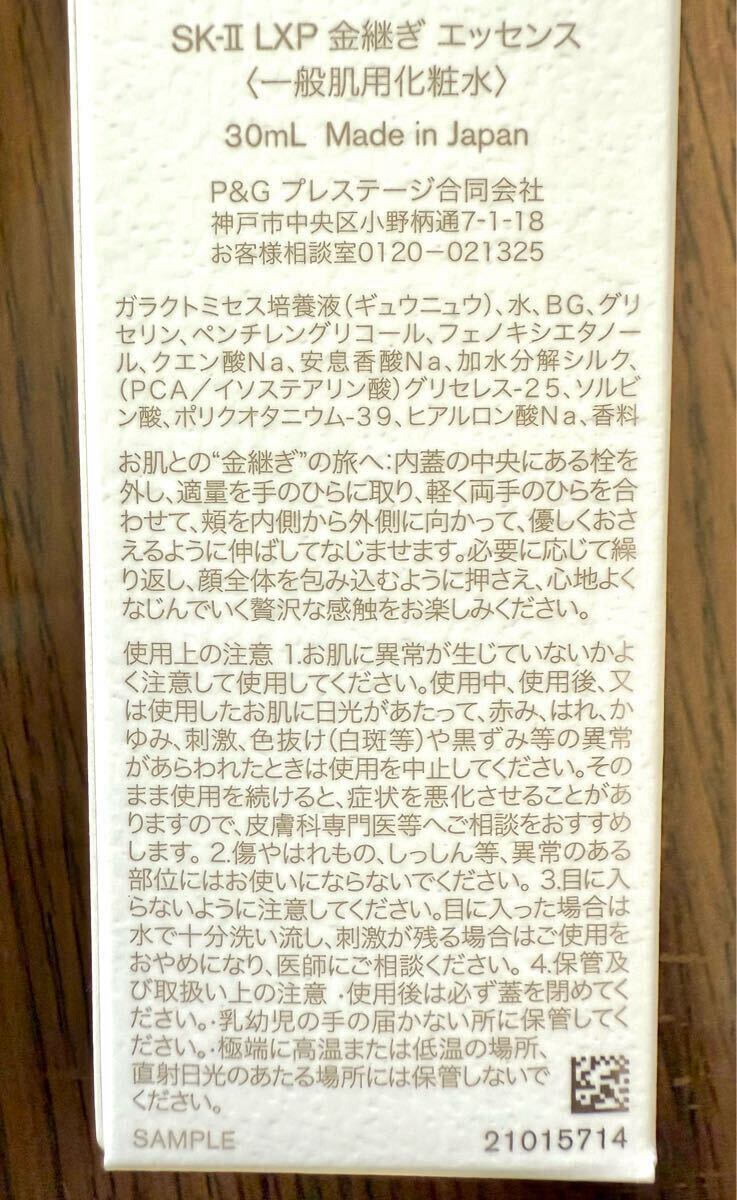 SK-II LXP 金継ぎ エッセンス
〈一般肌用化粧水〉
30mL Made in Japan
P&G プレステージ合同会社
神戸市中央区小野柄通7-1-18
お客様相談室0120-021325
ガラクトミセス培養液(ギュウニュウ)、水、BG、グリ
セリン、ペンチレングリコール、フェノキシエタノー
ル、クエン酸Na、安息香酸Na、加水分解シルク、
(PCA/イソステアリン酸)グリセレス-25、ソルビ
ン酸、ポリクオタニウム-39、ヒアルロン酸Na、香料
お肌との“金継ぎ”の旅へ:内蓋の中央にある栓を
外し、適量を手のひらに取り、軽く両手のひらを合
わせて、頬を内側から外側に向かって、優しくおさ
えるように伸ばしてなじませます。必要に応じて繰
り返し、顔全体を包み込むように押さえ、心地よく
なじんでいく贅沢な感触をお楽しみください。
使用上の注意 1.お肌に異常が生じていないかよ
く注意して使用してください。使用中、使用後、又
は使用したお肌に日光があたって、赤み、はれ、か
ゆみ、刺激、色抜け(白斑等)や黒ずみ等の異常
があらわれたときは使用を中止してください。その
まま使用を続けると、症状を悪化させることがあ
りますので、皮膚科専門医等へご相談をおすすめ
します。 2.傷やはれもの、しっしん等、異常のある
部位にはお使いにならないでください。 3.目に入
らないように注意してください。目に入った場合は
水で十分洗い流し、刺激が残る場合はご使用を
おやめになり、医師にご相談ください。 4.保管及
び取扱い上の注意 ・使用後は必ず蓋を閉めてく
ださい。・乳幼児の手の届かない所に保管してく
ださい。・極端に高温または低温の場所、
直射日光のあたる場所には保管しないで
ください。
SAMPLE 21015714